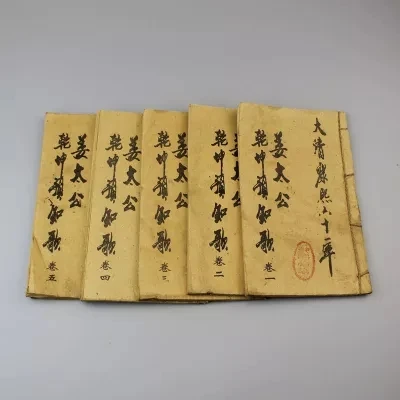 大清康熙六十一年
姜太公
乾坤預知歌 卷一
姜太公
乾坤預知歌 卷二
姜太公
乾坤預知歌 卷三
姜太公
乾坤預知歌 卷四
姜太公
乾坤預知歌 卷五